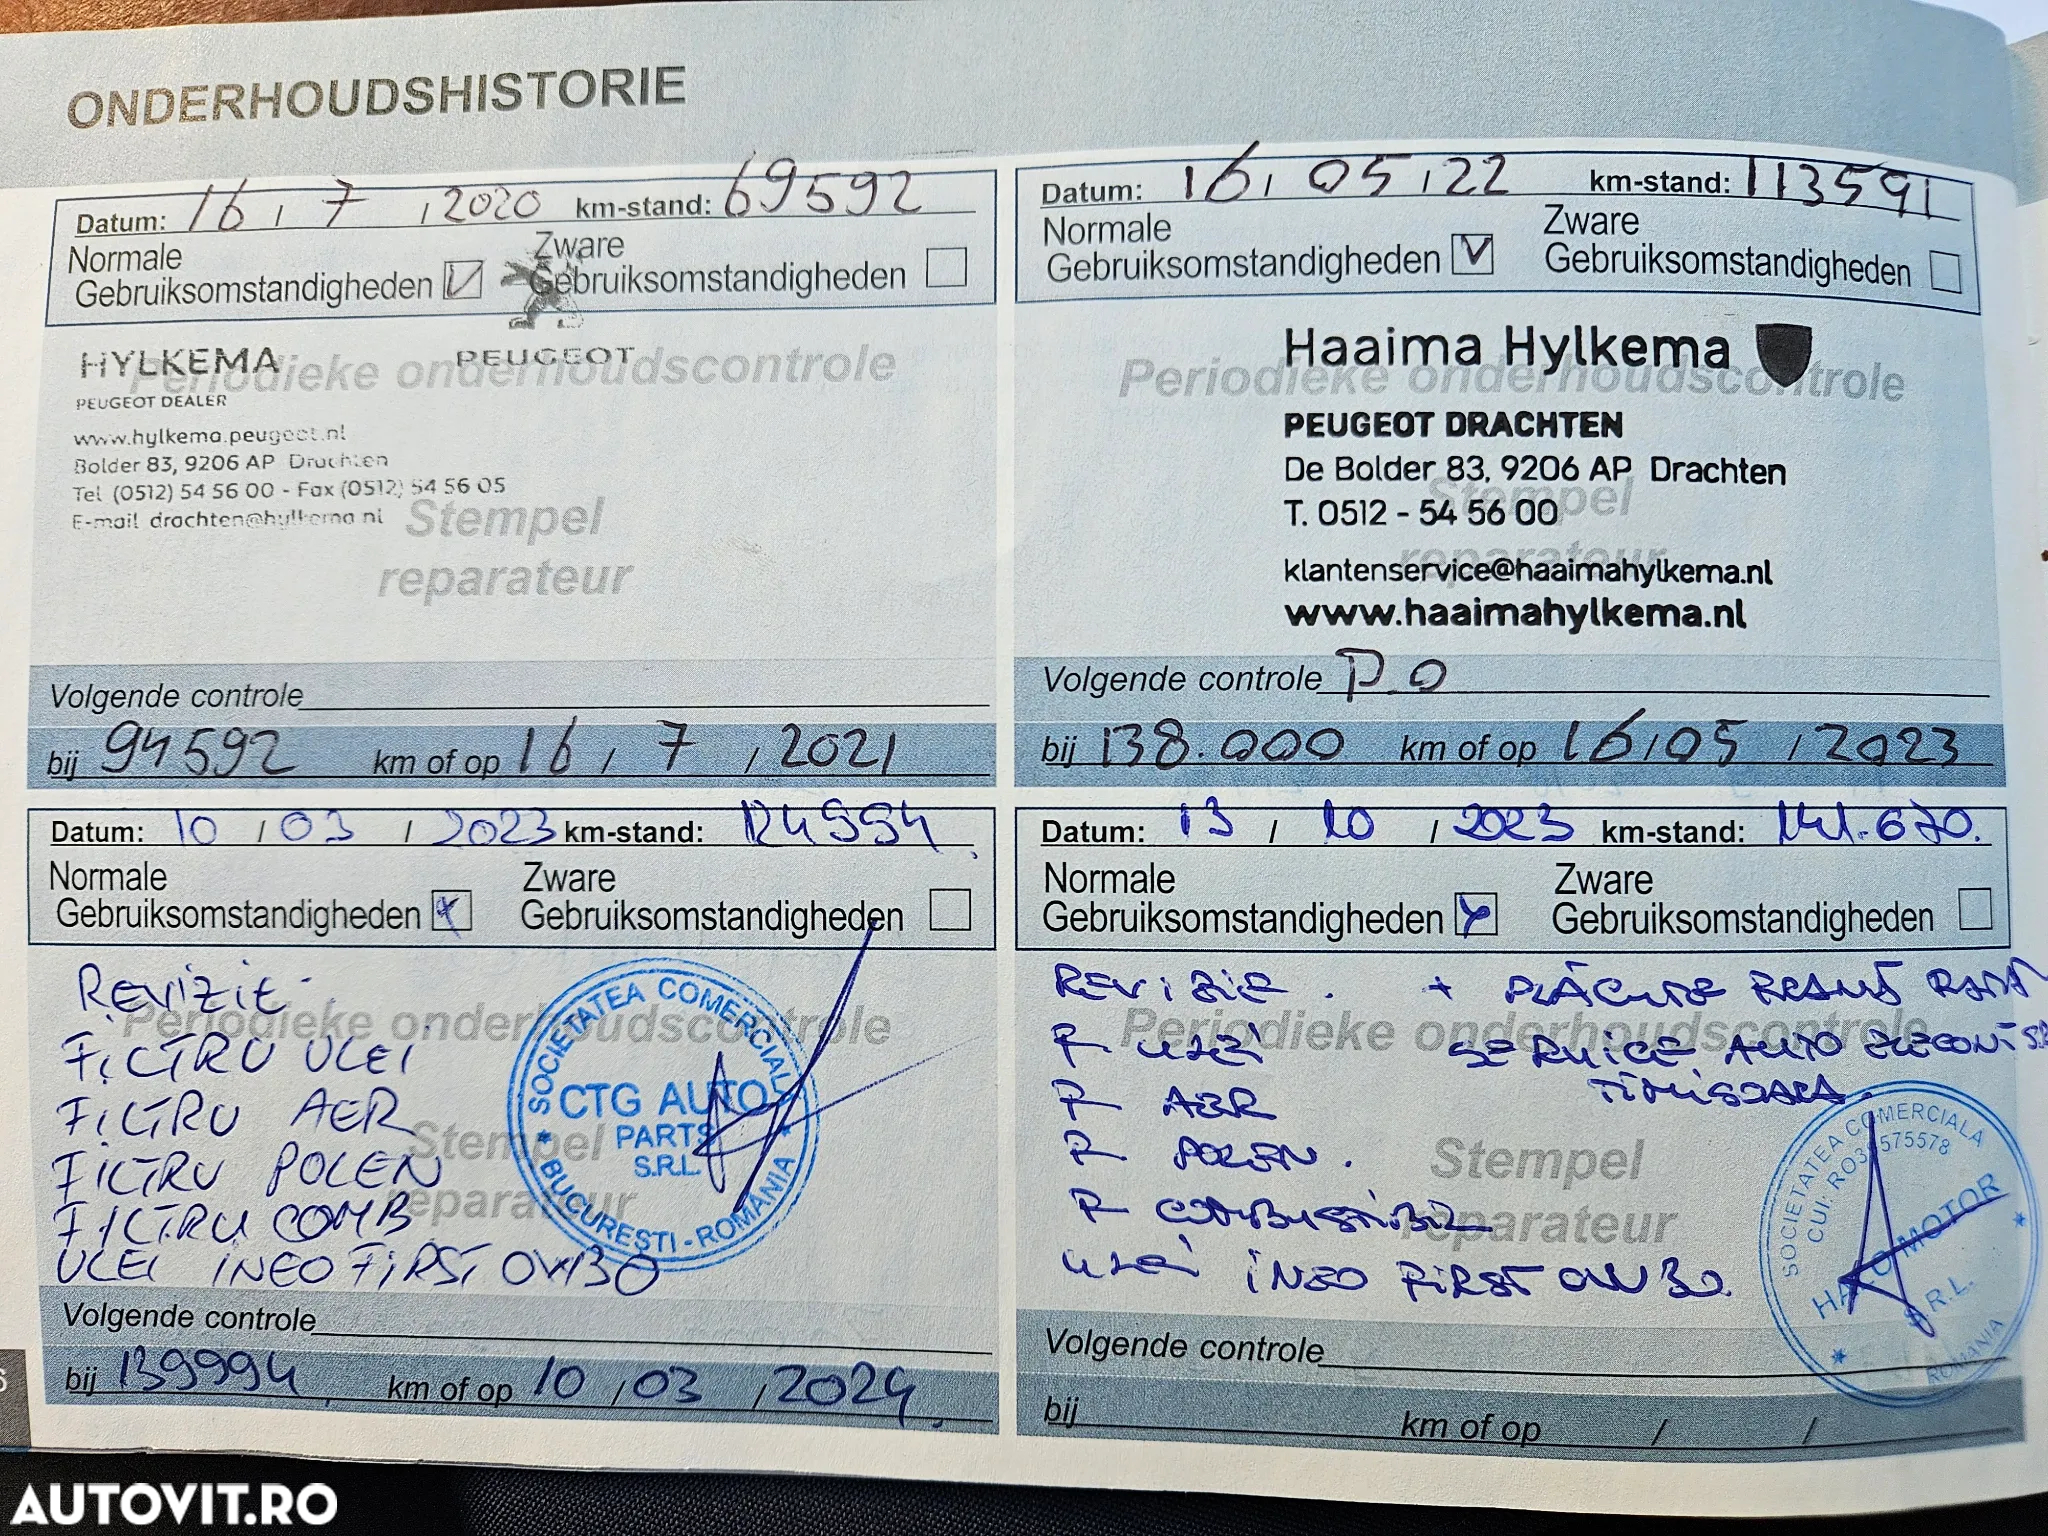 ONDERHOUDSHISTORIE
Datum: 16 / 7 / 2020 km-stand: 69592
Normale Gebruiksomstandigheden V Zware Gebruiksomstandigheden
HYLKEMA PEUGEOT
PEUGEOT DEALER
www.hylkema.peugeot.nl
Bolder 83, 9206 AP Drachten
Tel (0512) 54 56 00 - Fax (0512) 54 56 05
E-mail drachten@hylkema.nl
Periodieke onderhoudscontrole
Stempel
reparateur
Volgende controle
bij 94592 km of op 16 / 7 / 2021
Datum: 16 / 05 / 22 km-stand: 113591
Normale Gebruiksomstandigheden V Zware Gebruiksomstandigheden
Haaima Hylkema
PEUGEOT DRACHTEN
De Bolder 83, 9206 AP Drachten
T. 0512 - 54 56 00
klantenservice@haaimahylkema.nl
www.haaimahylkema.nl
Periodieke onderhoudscontrole
Stempel
reparateur
Volgende controle P.O
bij 138.000 km of op 16 / 05 / 2023
Datum: 10 / 03 / 2023 km-stand: 124994
Normale Gebruiksomstandigheden x Zware Gebruiksomstandigheden
REVIZIE
FILTRU ULEI
FILTRU AER
FILTRU POLEN
FILTRU COMB
ULEI INEO FIRST 0W30
SOCIETATEA COMERCIALA
CTG AUTO
PARTS
S.R.L.
BUCURESTI - ROMANIA
Periodieke onderhoudscontrole
Stempel
reparateur
Volgende controle
bij 139994 km of op 10 / 03 / 2024
Datum: 13 / 10 / 2023 km-stand: 141.670.
Normale Gebruiksomstandigheden x Zware Gebruiksomstandigheden
REVIZIE. + PLĂCUȚE FRANĂ
F. ULEI SERVICE AUTO
F. AER TIMISOARA.
F. POLEN.
F. COMBUSTIBIL
ULEI INEO FIRST 0W30.
SOCIETATEA COMERCIALA
MOTOR
S.R.L.
ROMANIA
Periodieke onderhoudscontrole
Stempel
reparateur
Volgende controle
bij km of op / /
6
AUTOVIT.RO